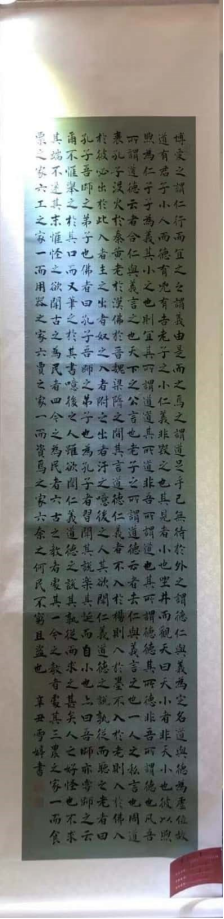 博愛之謂仁行而宜之之謂義由是而之焉之謂道足乎己無待於外之謂德仁與義為定名道與德為虛位故
道有君子小人而德有凶有吉老子之小仁義非毀之也其見者小也坐井而觀天曰天小者非天小也彼以煦
煦為仁孑孑為義其小之也則宜其所謂道道其所道非吾所謂道也其所謂德德其所德非吾所謂德也凡吾
所謂道德云者合仁與義言之也天下之公言也老子之所謂道德云者去仁與義言之也一人之私言也周道
衰孔子沒火於秦黃老於漢佛於晉魏梁隋之間其言道德仁義者不入於楊則入於墨不入於老則入於佛入
於彼必出於此入者主之出者奴之入者附之出者汙之噫後之人其欲聞仁義道德之說孰從而聽之老者曰
孔子吾師之弟子也佛者曰孔子吾師之弟子也為孔子者習聞其說樂其誕而自小也亦曰吾師亦嘗師之云
爾不惟舉之於其口而又筆之於其書噫後之人雖欲聞仁義道德之說其孰從而求之甚矣人之好怪也不求
其端不訊其末惟怪之欲聞古之為民者四今之為民者六古之教者處其一今之教者處其三農之家一而食
粟之家六工之家一而用器之家六賈之家一而資焉之家六奈之何民不窮且盜也 辛丑雪婷書